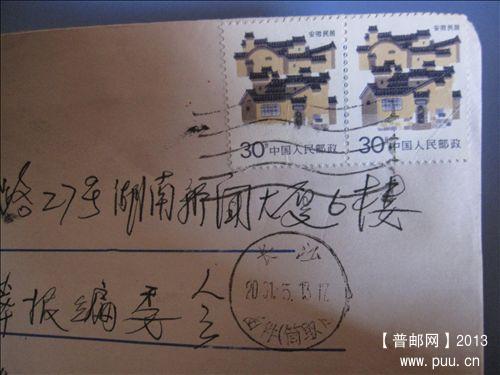 安徽民居
安徽民居
30分 中国人民邮政
30分 中国人民邮政
路27号湖南新闻大厦6楼
长沙
2001.5.13.17
(筒取)
报编委
【普邮网】2013
www.puu.cn